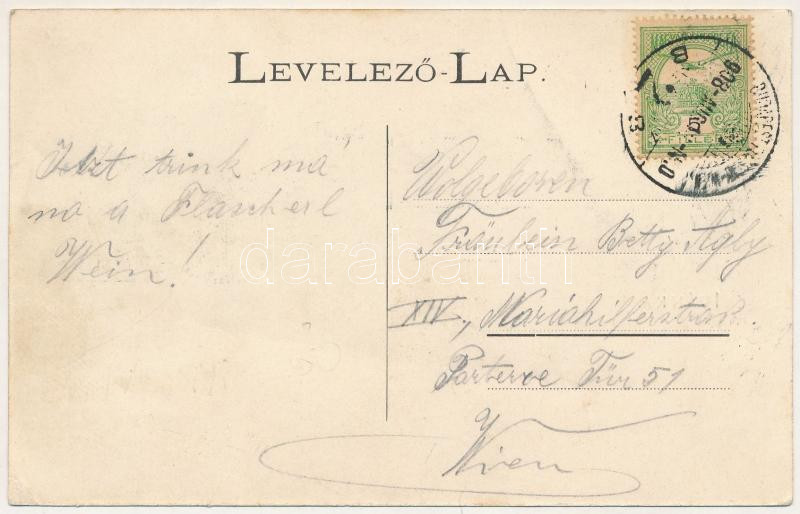 LEVELEZŐ-LAP.
Jetzt trink ma
no a Flascherl
Wein!
Wolgeboren
Fräulein Betty
XIV., Mariahilferstraß.
Parterre Tür 51
Wien
darabanth